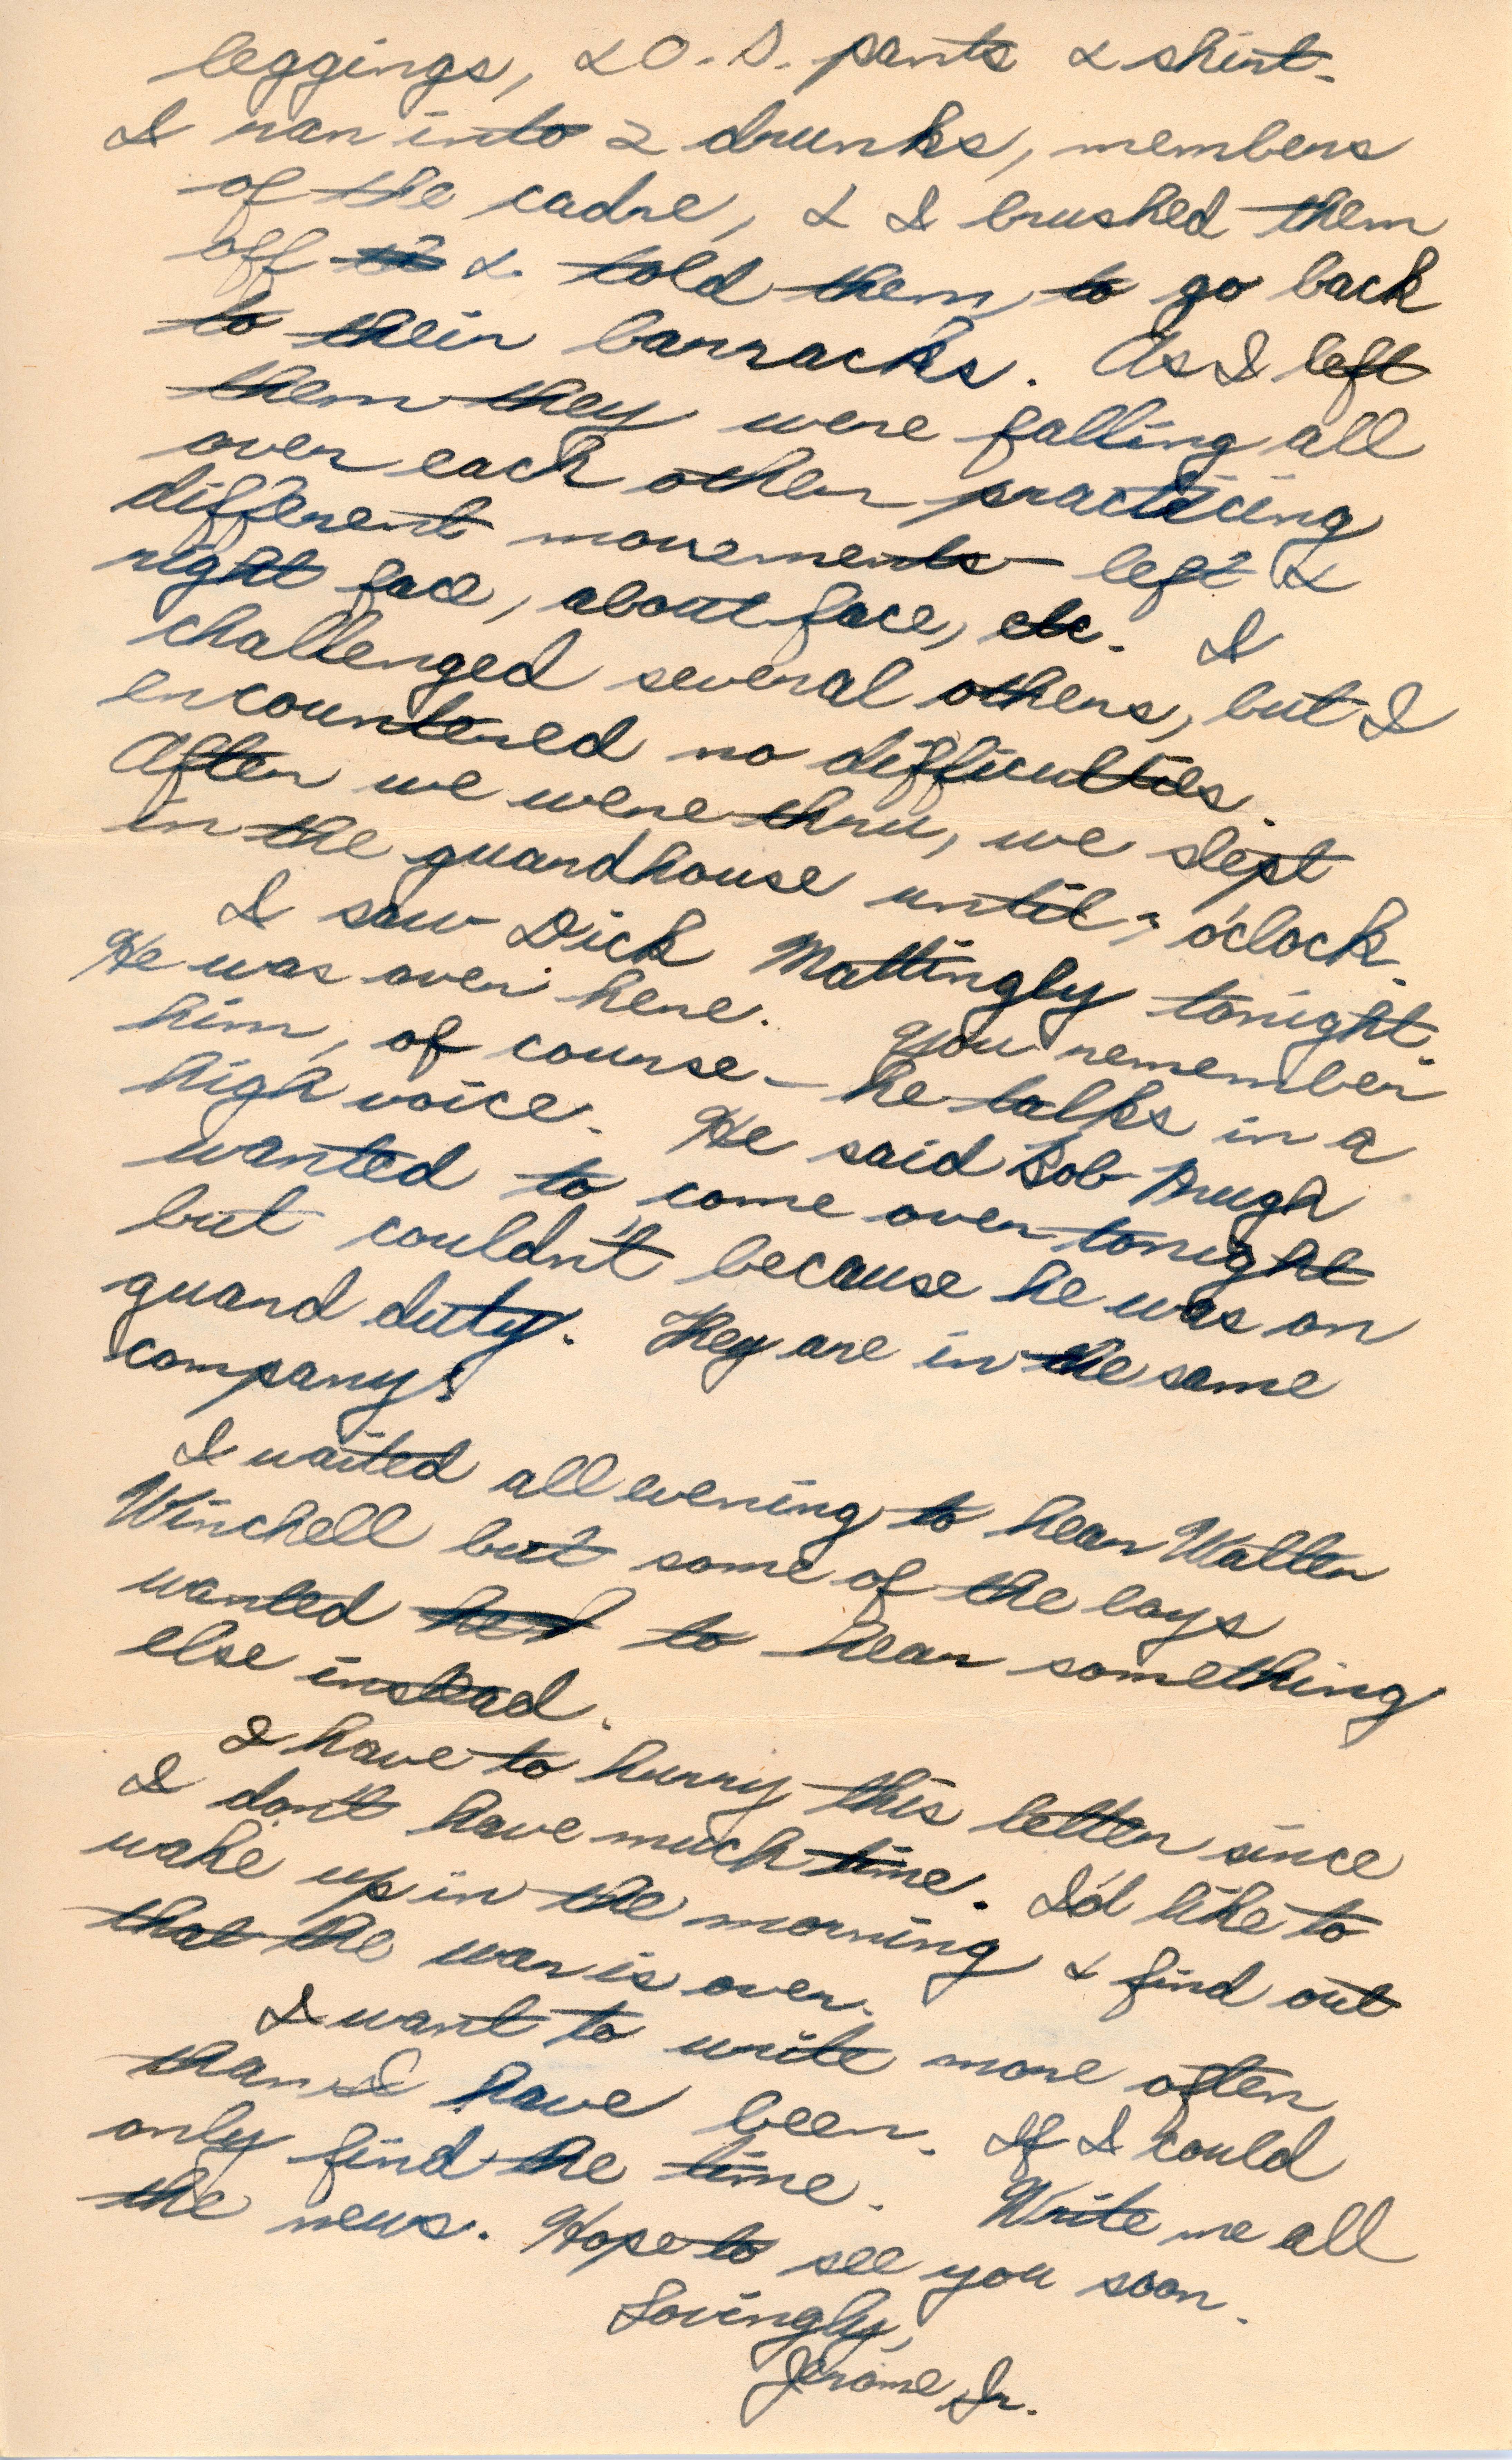 leggings, & O.D. pants & shirt.
I ran into 2 drunks, members
of the cadre, & I brushed them
off & told them to go back
to their barracks. As I left
them they were falling all
over each other practicing
different movements – left &
right face, about face, etc. I
challenged several others, but I
encountered no difficulties.
After we were thru, we slept
in the guardhouse until o'clock.
I saw Dick Mattingly tonight.
He was over here. You remember
him, of course – he talks in a
high voice. He said Bob Pugh
wanted to come over tonight
but couldn't because he was on
guard duty. They are in the same
company.
I waited all evening to hear Walter
Winchell but some of the boys
wanted to hear something
else instead.
I have to hurry this letter since
I don't have much time. I'd like to
wake up in the morning & find out
that the war is over.
I want to write more often
than I have been. If I could
only find the time. Write me all
the news. Hope to see you soon.
Lovingly,
Jerome Jr.